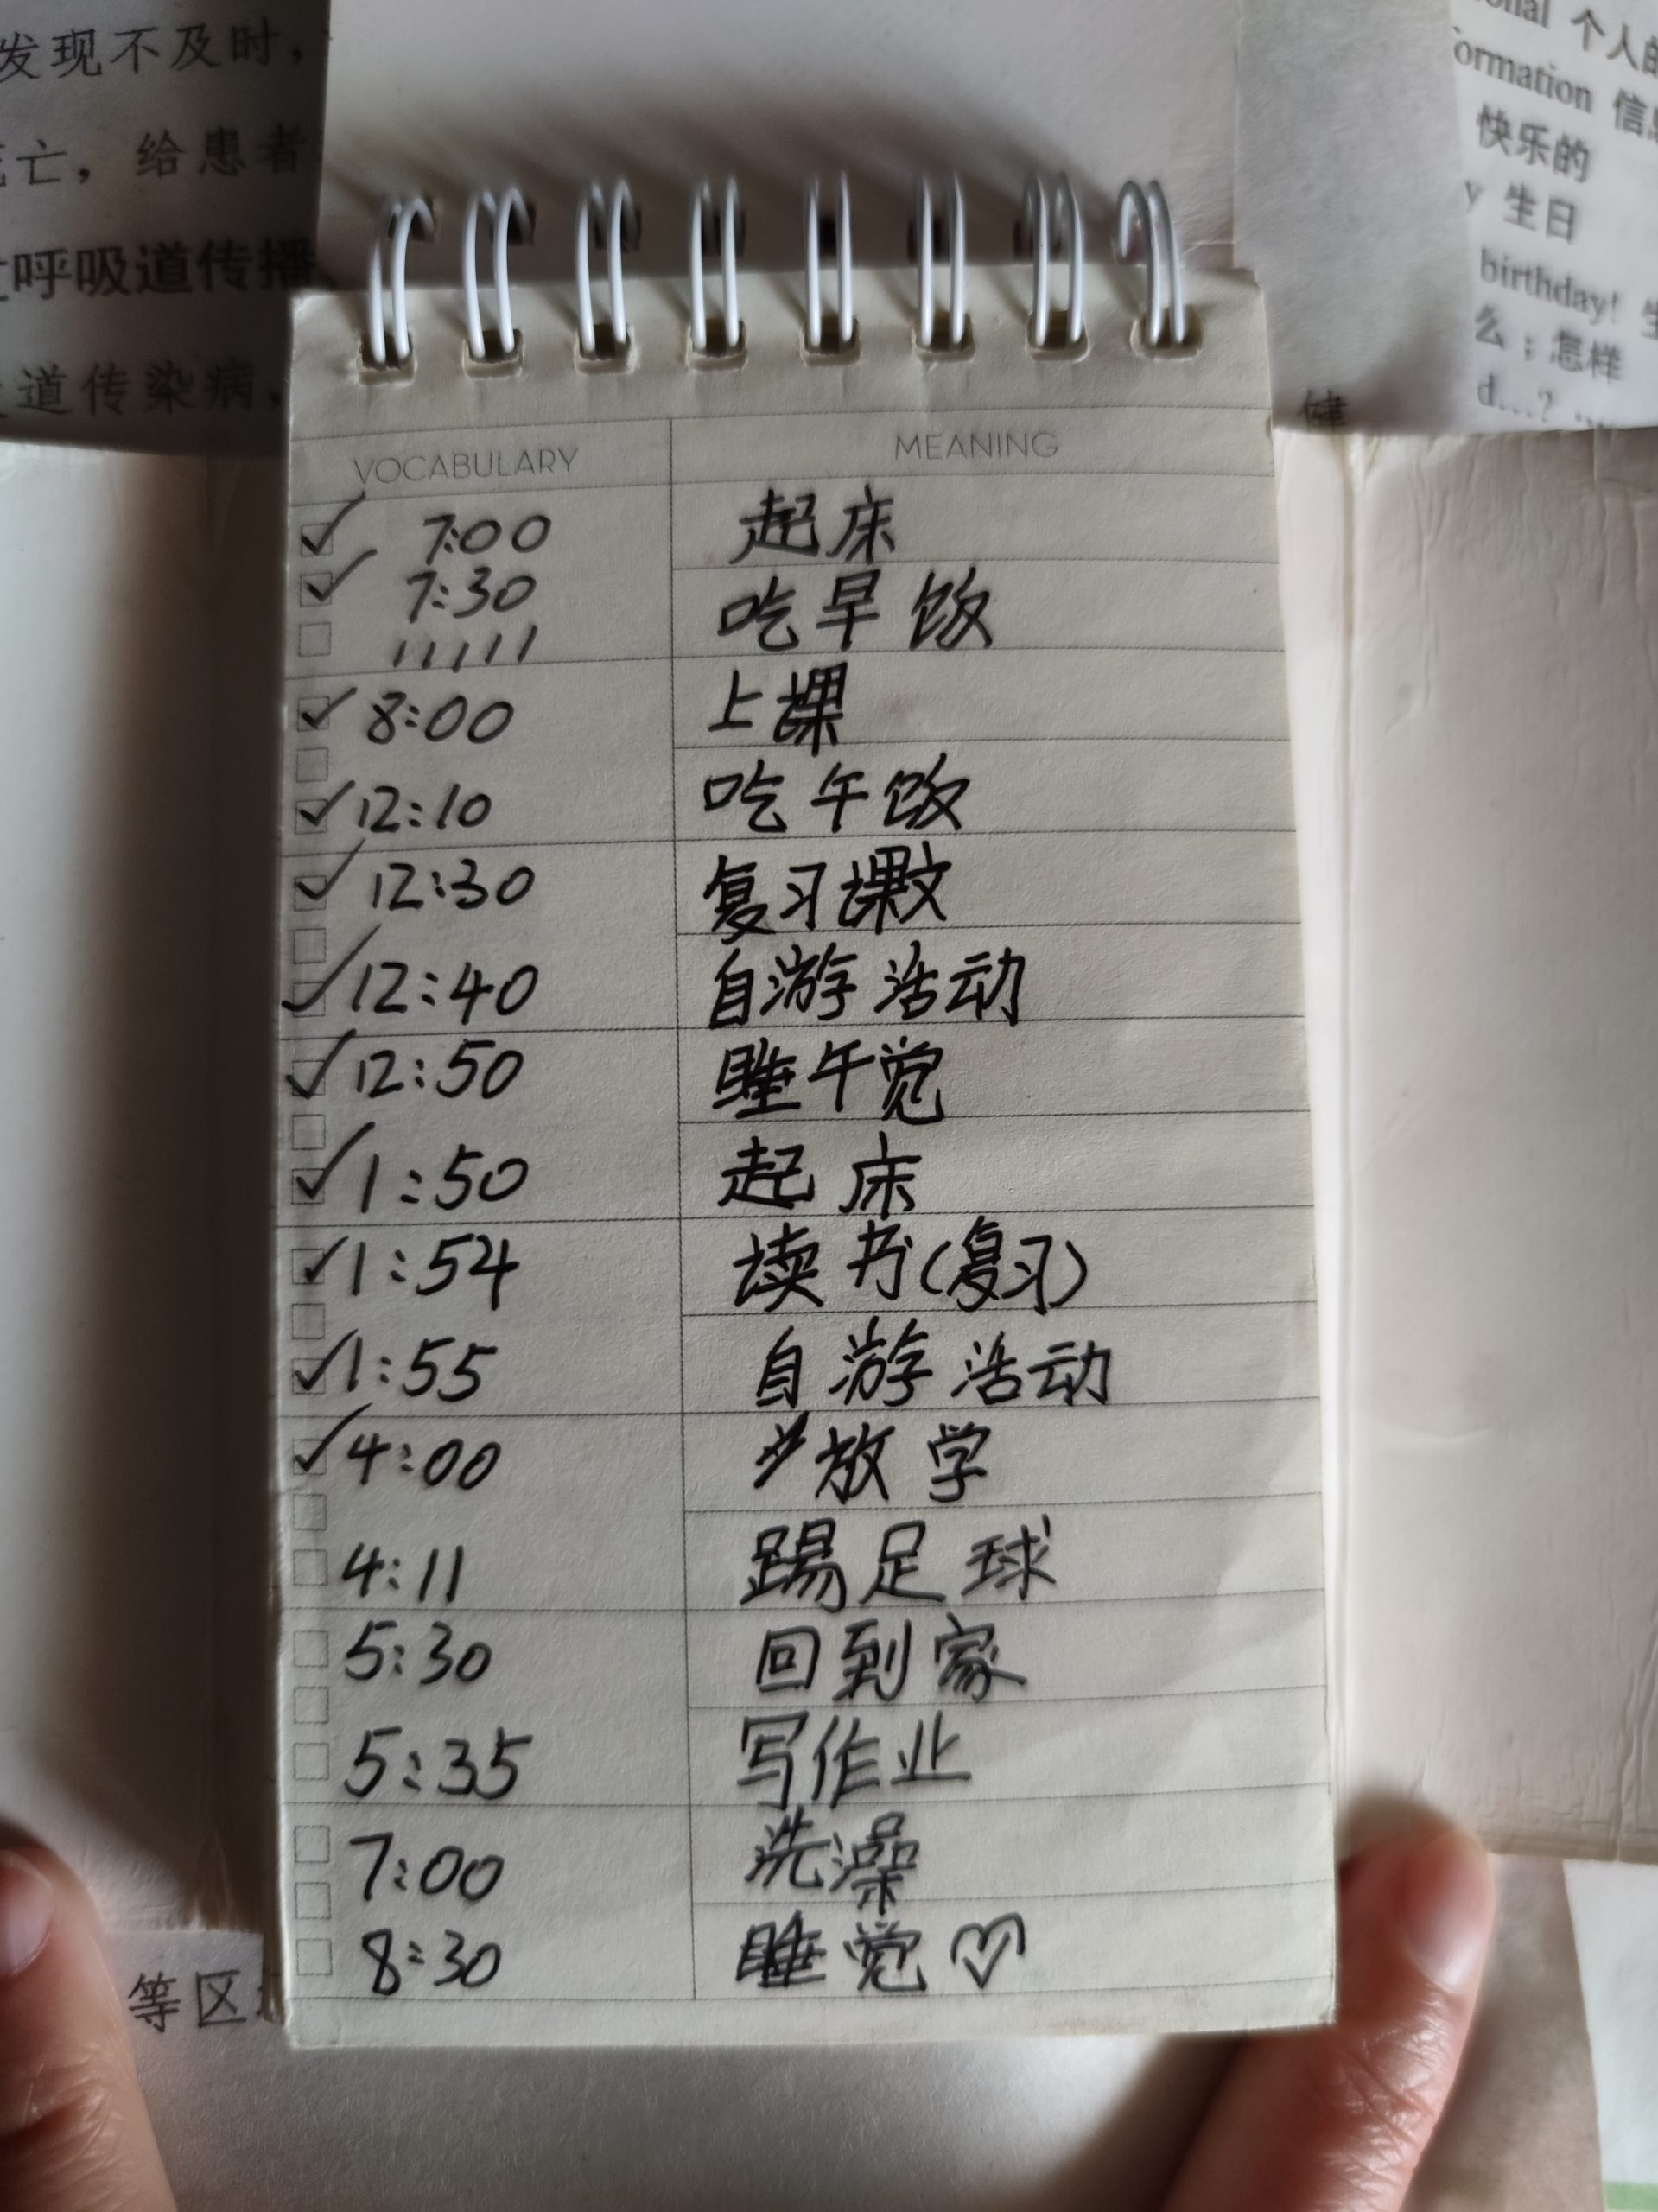 发现不及时，
亡，给患者
呼吸道传播
道传染病，
个人的
ormation 信息
快乐的
y 生日
birthday! 生
么；怎样
d...? ...
健
VOCABULARY MEANING
7:00 起床
7:30 吃早饭
11111
8:00 上课
12:10 吃午饭
12:30 复习课文
12:40 自游活动
12:50 睡午觉
1:50 起床
1:54 读书(复习)
1:55 自游活动
4:00 放学
4:11 踢足球
5:30 回到家
5:35 写作业
7:00 洗澡
8:30 睡觉♡
等区